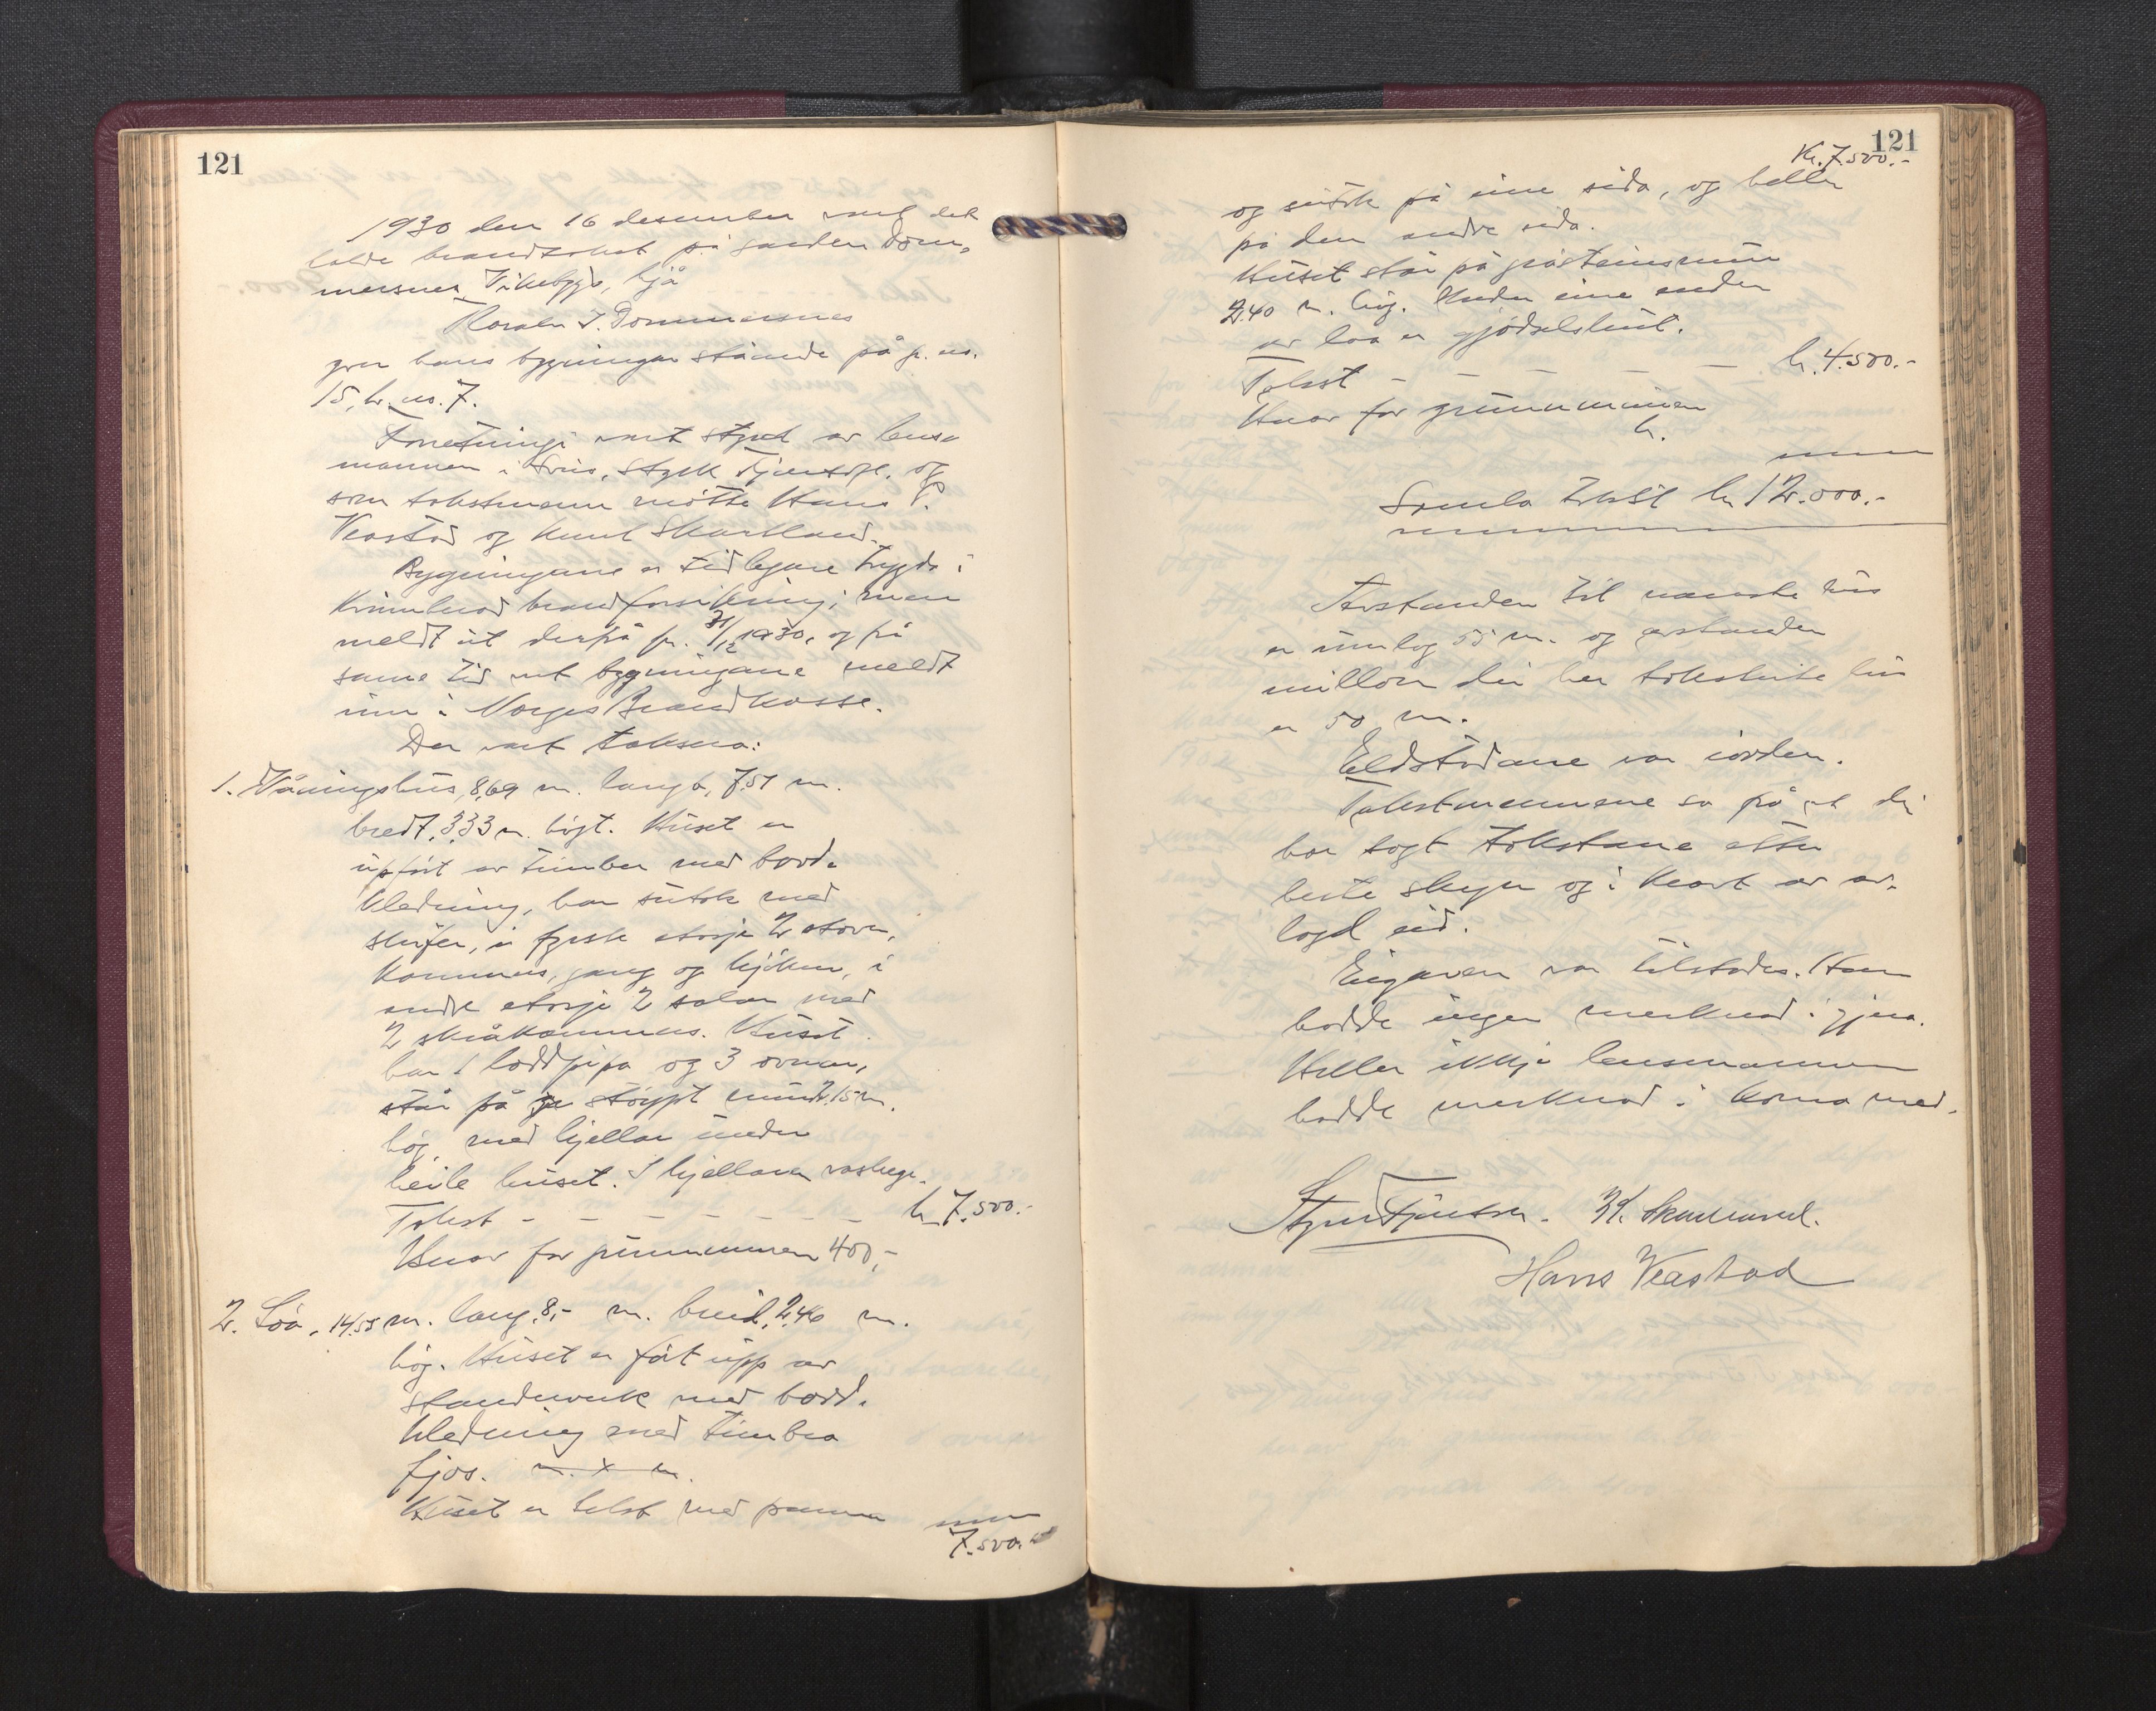 121
1930 den 16 desember vart det
halde brandtakst på garden Dom-
mersnes Vikebygd, hjå
T. Dommersnes
yver hans bygningar ståande på g. no.
15, br. no. 7.
Forretningi vart styrd av lens-
mannen i og
som takstmenn møtte Hans P.
Veastad og Knut Skartland.
Bygningane er tidlegare trygda i
brandforsikring, men
meldt ut derfrå pr. 31/12 1930, og frå
same tid vert bygningane meldt
inn i Norges Brandkasse.
Der vart taksera:
1. Våningshus, 8,69 m. langt, 7,51 m.
bredt, 3,33 m. högt. Huset er
uppfört av timber med bord-
kledning, har sutak med
skifer, i fyrste etasje 2 stover,
kammers, gang og kjöken, i
andre etasje 2 salar med
2 skråkammers. Huset
har 1 loddpipa og 3 ovnar,
står på støypt mur 2,15 m.
hög, med kjellar under
heile huset. I kjellaren
Takst - - - - - - - kr 7.500.-
Herav for grunnmuren 400,-
2. Löa, 14,55 m. lang, 8,- m. breid, 2,46 m.
hög. Huset er fört upp av
standerverk med bord-
kledning med timbra
fjos. m. x m.
Huset er tekt med panner
7.500.-
121
Kr. 7.500.-
og sutak på eine sida, og heller
på den andre sida.
Huset står på gråsteinsmur
2,40 m. hög. Under eine enden
av löa er gjödselshus.
Takst - - - - - kr. 4.500.-
Herav for grunnmuren
kr.
Samla takst kr 12.000.-
Avstanden til næmste hus
er umlag 55 m. og avstanden
millom dei her taksterte hus
er 50 m.
Eldstadane var iorden.
Takstmennene sa frå at dei
har sagt takstane etter
beste skyn og i kraft av av-
lagd eid.
Eigaren var tilstades. Han
hadde ingen merknad i gjera.
Heller ikkje lensmannen
hadde merknad i koma med.
Hans Veastad